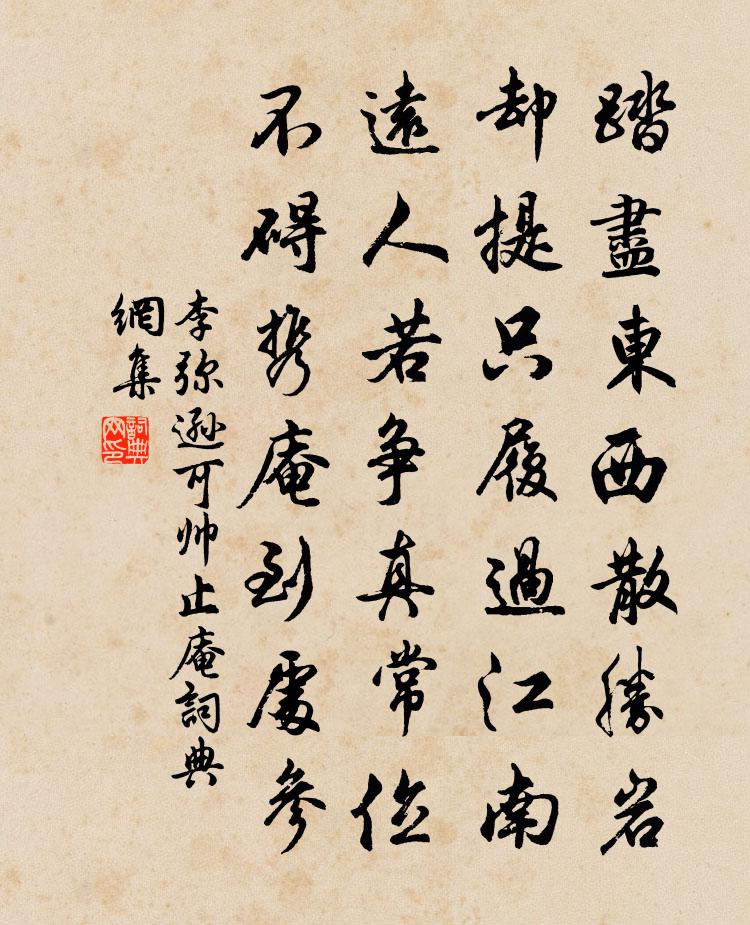 踏盡東西散勝岩
却提只履過江南
遠人若争真常位
不碍携庵到處參
李弥遜可帅止庵詞典
網集
詞典
网印